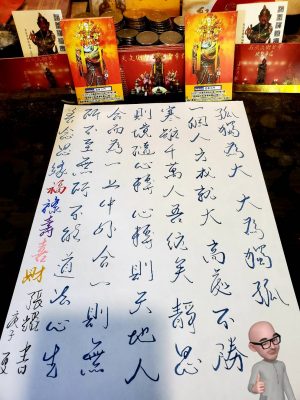 孤獨為大 大為獨孤
一個人方成就大 高處不勝
寒 千萬人吾 矣 靜思
則境隨心轉 心轉則天地人
合而為一 外合一則無
所不至無所不能道法心生
意念思緣福祿壽喜財 張耀書
庚子夏